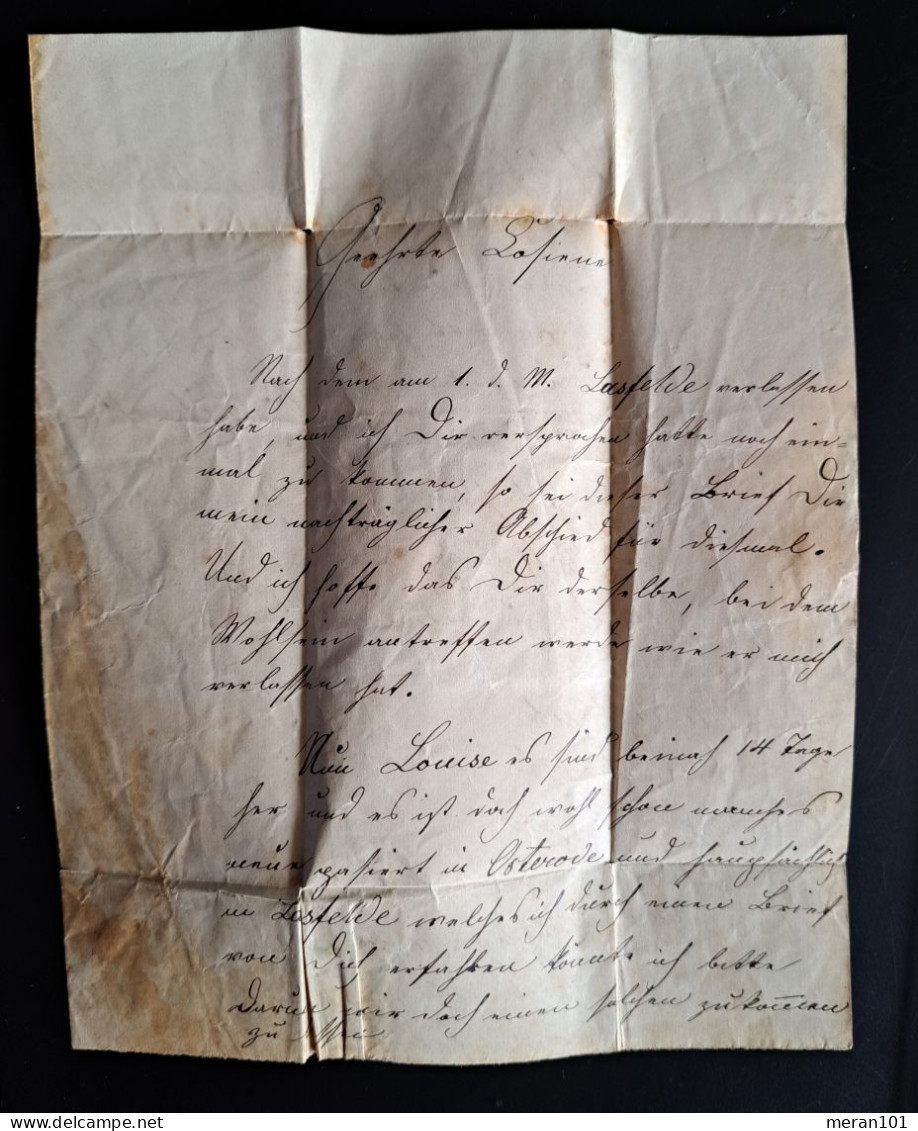 Geehrte Cosiene
Nach dem am 1. d. M. Lasfelde verlassen
habe, und ich Dir versprochen hatte noch ein=
mal zu kommen, so sei dieser Brief Dir
mein nachträglicher Abschied für diesmal.
Und ich hoffe das Dir derselbe, bei dem
Wohlsein antreffen werde wie er mich
verlassen hat.
Nun Louise es sind beinah 14 Tage
her und es ist doch wohl schon manches
neue pasiert in Osterode und haupsächlich
in Lasfelde welches ich durch einen Brief
von Dich erfahren könnte ich bitte
Darum mir doch einen solchen zukommen
zu
meran101